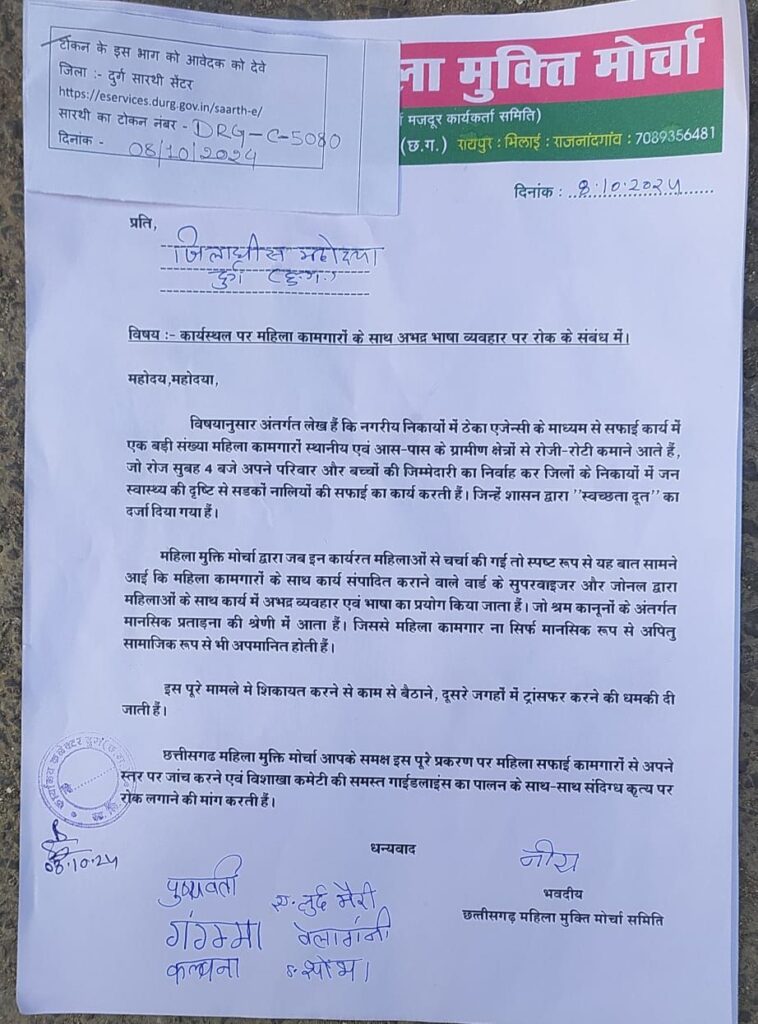 टोकन के इस भाग को आवेदक को देवे
जिला :- दुर्ग सारथी सेंटर
https://eservices.durg.gov.in/saarth-e/
सारथी का टोकन नंबर - DRG-C-5080
दिनांक - 08/10/2024
ला मुक्ति मोर्चा
मजदूर कार्यकर्ता समिति)
(छ.ग.) रायपुर : भिलाई : राजनांदगांव : 7089356481
दिनांक : 8.10.2024
प्रति,
जिलाधीस महोदया
दुर्ग (छ.ग.)
विषय :- कार्यस्थल पर महिला कामगारों के साथ अभद्र भाषा व्यवहार पर रोक के संबंध में।
महोदय,महोदया,
विषयानुसार अंतर्गत लेख हैं कि नगरीय निकायों में ठेका एजेन्सी के माध्यम से सफाई कार्य में
एक बड़ी संख्या महिला कामगारों स्थानीय एवं आस-पास के ग्रामीण क्षेत्रों से रोजी-रोटी कमाने आते हैं,
जो रोज सुबह 4 बजे अपने परिवार और बच्चों की जिम्मेदारी का निर्वाह कर जिलों के निकायों में जन
स्वास्थ्य की दृष्टि से सडकों नालियों की सफाई का कार्य करती हैं। जिन्हें शासन द्वारा ''स्वच्छता दूत'' का
दर्जा दिया गया हैं।
महिला मुक्ति मोर्चा द्वारा जब इन कार्यरत महिलाओं से चर्चा की गई तो स्पष्ट रूप से यह बात सामने
आई कि महिला कामगारों के साथ कार्य संपादित कराने वाले वार्ड के सुपरवाइजर और जोनल द्वारा
महिलाओं के साथ कार्य में अभद्र व्यवहार एवं भाषा का प्रयोग किया जाता हैं। जो श्रम कानूनों के अंतर्गत
मानसिक प्रताड़ना की श्रेणी में आता हैं। जिससे महिला कामगार ना सिर्फ मानसिक रूप से अपितु
सामाजिक रूप से भी अपमानित होती हैं।
इस पूरे मामले मे शिकायत करने से काम से बैठाने, दूसरे जगहों में ट्रांसफर करने की धमकी दी
जाती हैं।
छत्तीसगढ महिला मुक्ति मोर्चा आपके समक्ष इस पूरे प्रकरण पर महिला सफाई कामगारों से अपने
स्तर पर जांच करने एवं विशाखा कमेटी की समस्त गाईडलाइंस का पालन के साथ-साथ संदिग्ध कृत्य पर
रोक लगाने की मांग करती हैं।
कार्यालय कलेक्टर दुर्ग
08.10.24
धन्यवाद
नीरा
भवदीय
छत्तीसगढ़ महिला मुक्ति मोर्चा समिति
पुष्पावती
ए. लुर्द मैरी
गंगम्मा
कल्पना